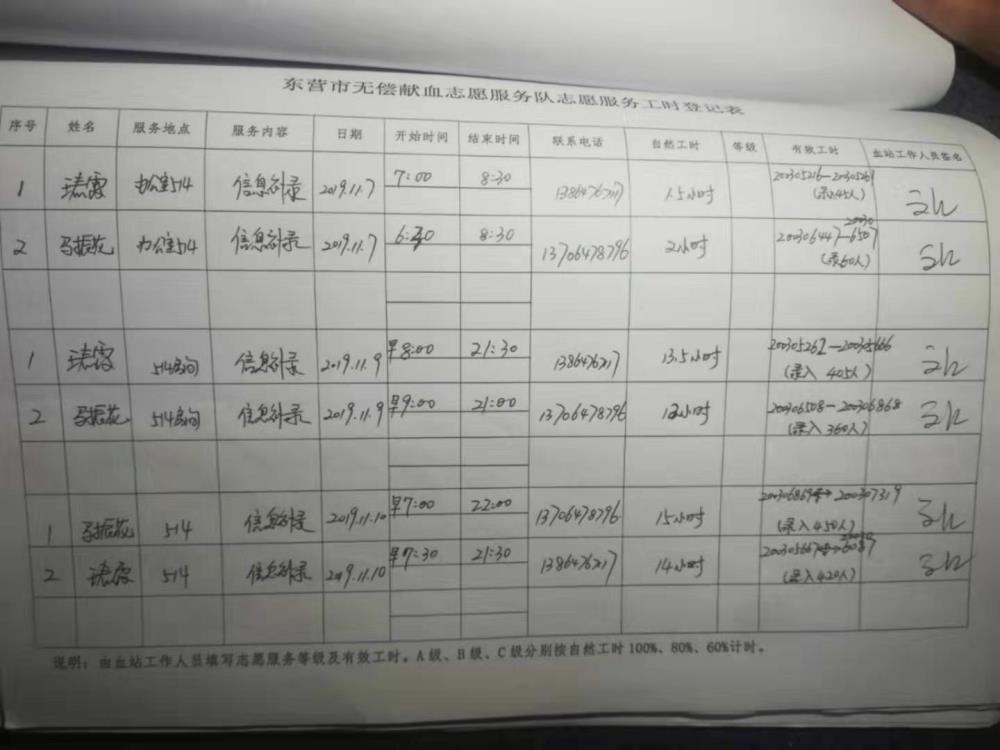 东营市无偿献血志愿服务队志愿服务工时登记表
序号 姓名 服务地点 服务内容 日期 开始时间 结束时间 联系电话 自然工时 等级 有效工时 血站工作人员签名
1 办公室514 信息补录 2019.11.7 7:00 8:30 1.5小时 200305216—20030526
(录入45人)
2 马振花 办公室514 信息补录 2019.11.7 6:30 8:30 13706478796 2小时 200306447—6507
(录60人)
1 514房间 信息补录 2019.11.9 早8:00 21:30 13.5小时 200305262—200305666
(录入 405人)
2 马振花 514房间 信息补录 2019.11.9 早9:00 21:00 13706478796 12小时 200306508—200306868
(录入 360人)
1 马振花 514 信息补录 2019.11.10 早7:00 22:00 13706478796 15小时 200306869 200307319
(录入450人)
2 514 信息补录 2019.11.10 早7:30 21:30 14小时 200305667 6087
(录入420人)
说明：由血站工作人员填写志愿服务等级及有效工时。A级、B级、C级分别按自然工时100%、80%、60%计时。